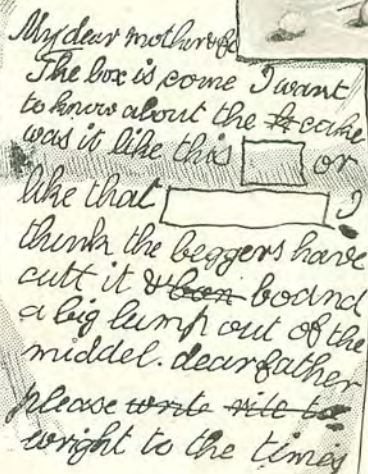 My dear mother & fa
The box is come I want
to know about the cake
was it like this or
like that I
think the beggers have
cutt it & boand
a big lump out of the
middel. dear father
please write rite to
wright to the times